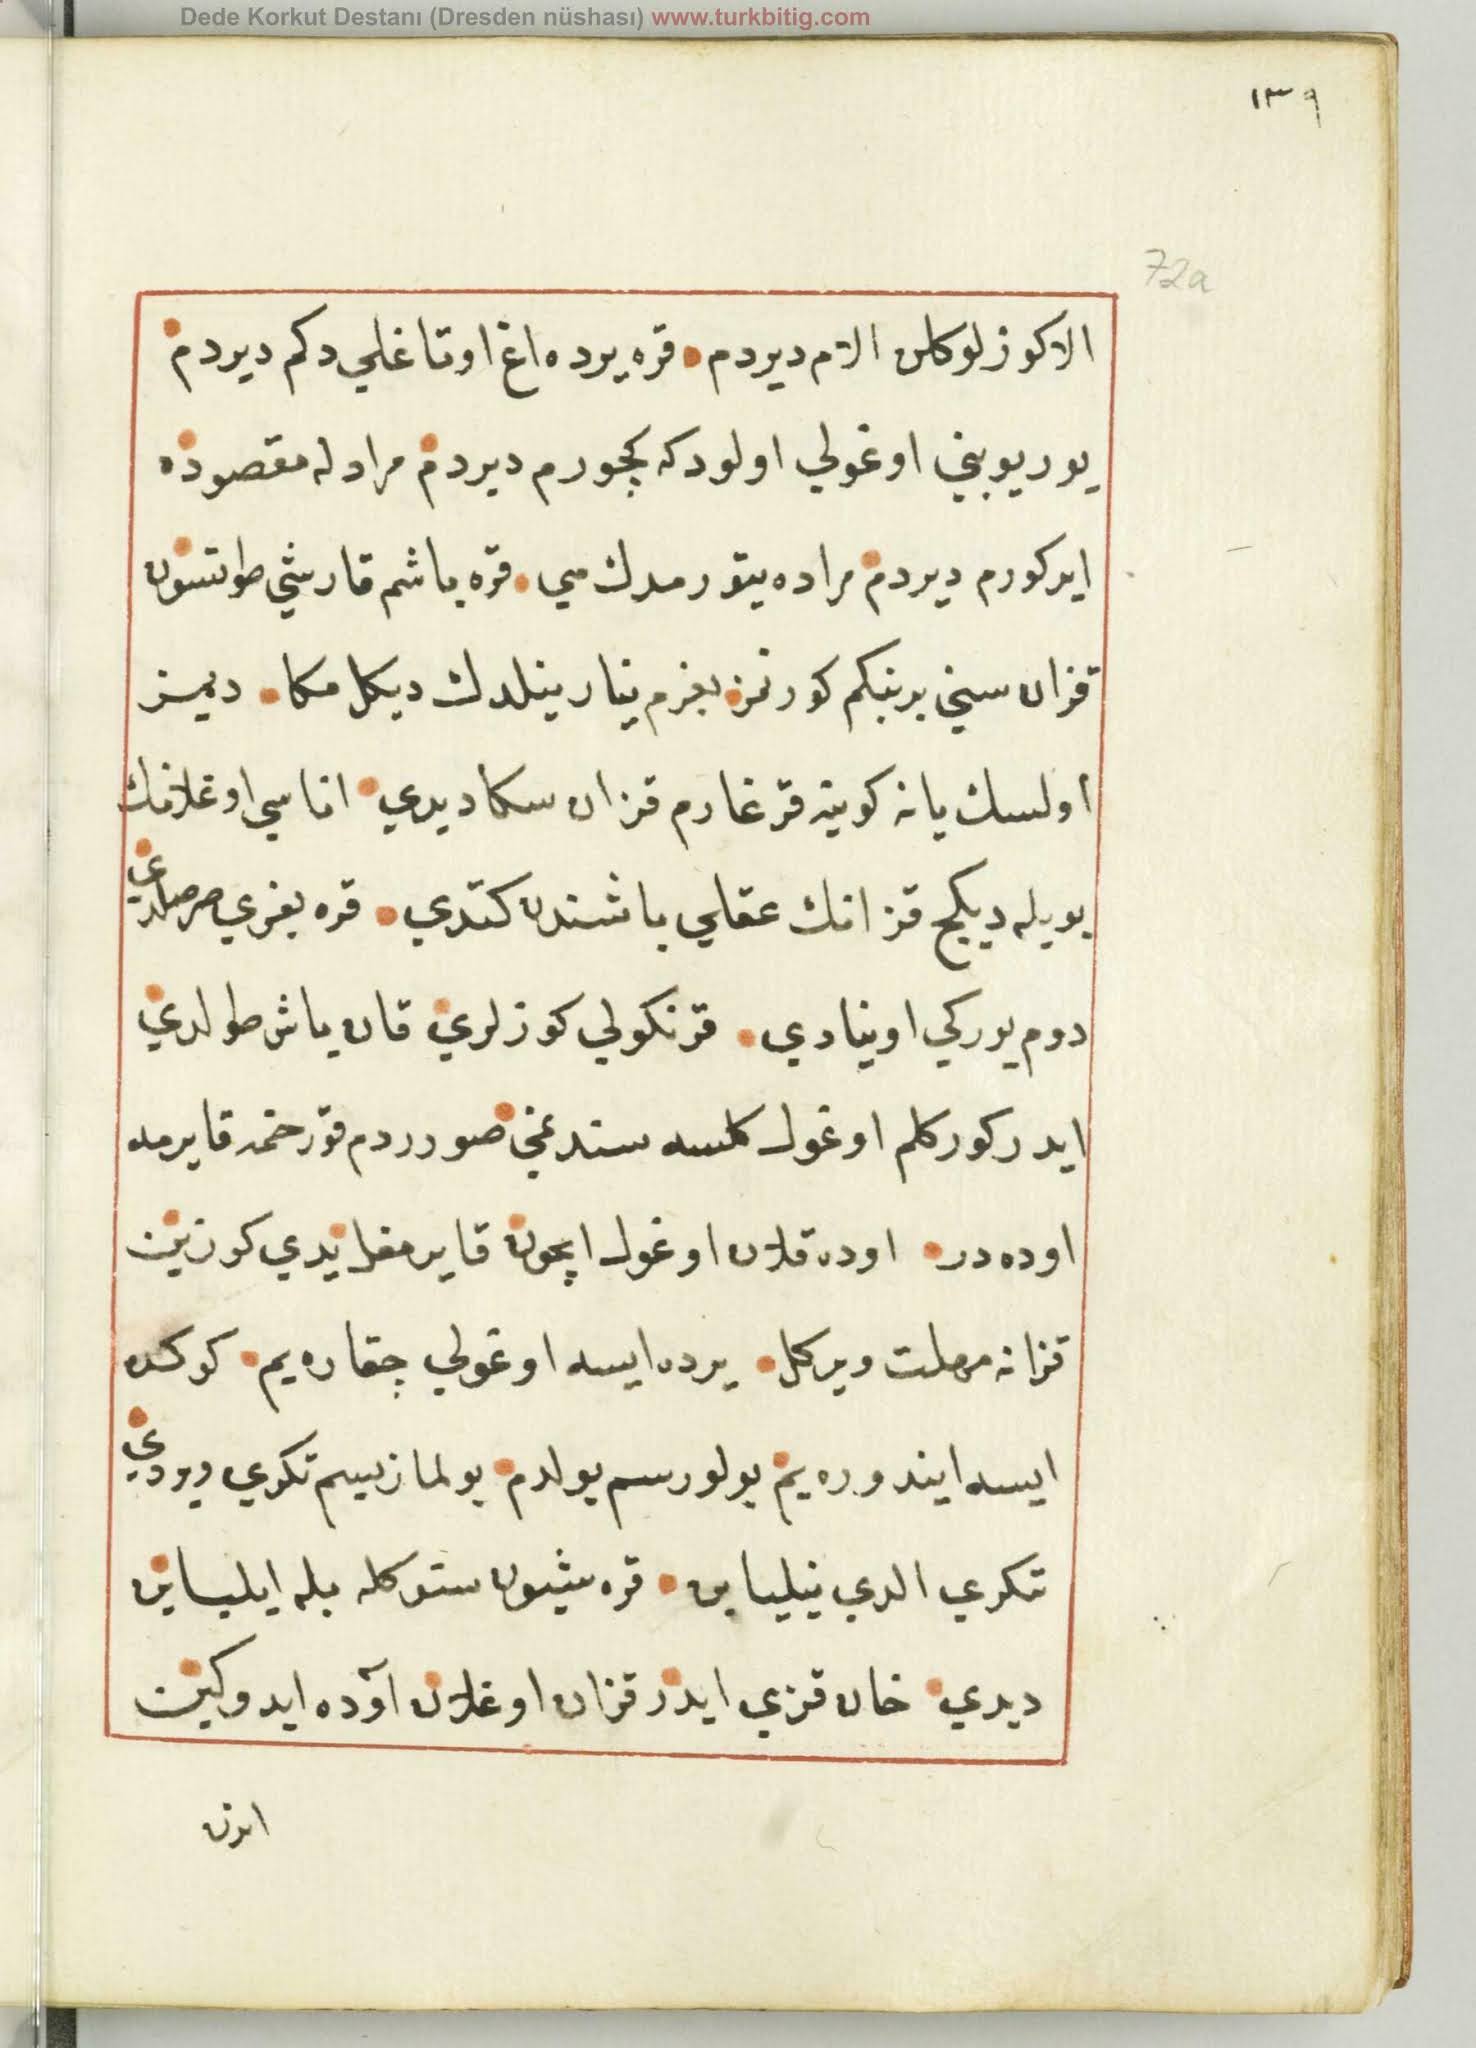 Dede Korkut Destanı (Dresden nüshası) www.turkbitig.com
١٣٩
72a
الا كوزلو كلن الام ديردم قره يرده اغ اوتاغلي دكم ديردم
يوريوبني اوغولي اولو دكه كچورم ديردم مراد له مقصوده
ايركورم ديردم مراده يتورمدك مي قره باشم قارشي طوتسون
قزان سني برنبكم كورنمز بغزم ينار ينلدك ديكل مكا ديمز
اولسك يانه كوينه قرغارم قزان سكا ديدي اناسي اوغلانك
بويله ديكج قزانك عقلي باشندن كتدي قره بغري صرصلدي
دوم يوركي اوينادي قرنكولي كوزلري قان ياش طولدي
ايدر كوركلم اوغول كلسه سندغني صوردم قورخمه قايرمه
اوده در اوده قلان اوغول ايچون قايرمغل يدي كوزين
قزانه مهلت ويركل يرده ايسه اوغولي چقاره يم كوكده
ايسه ايندوره يم بولورسم بولدم بولمازسم تكري ويردي
تكري الدي نيلياين قره شيون ستوكله بله ايلياين
ديدي خان قزي ايدر قزان اوغلان آوده ايدوكين
اندن